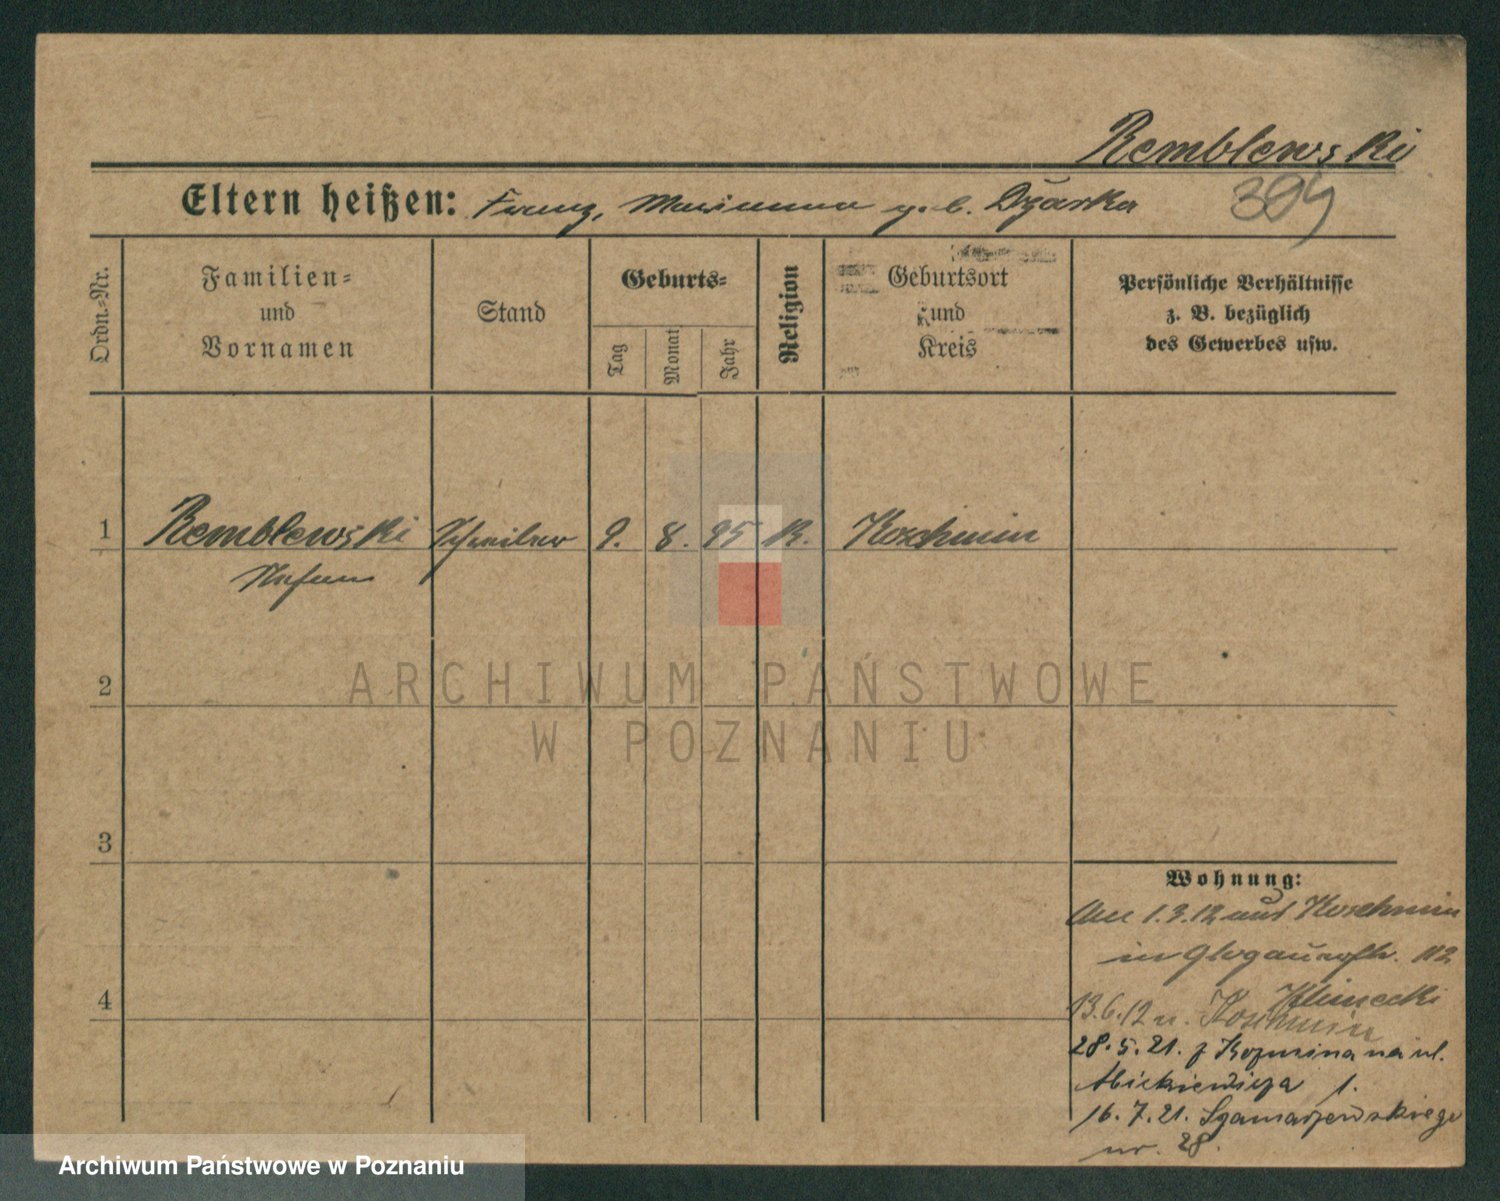 Remblewski
Eltern heißen: Franz, Marianna geb. Dżarska
394
Ordn.-Nr.
Familien-
und
Vornamen
Stand
Geburts-
Tag
Monat
Jahr
Religion
Geburtsort
und
Kreis
Persönliche Verhältnisse
z. B. bezüglich
des Gewerbes usw.
1 Remblewski Schreiber 9. 8. 95 K. Koschmin
Stefan
2
3
4
Wohnung:
Am 1.3.12 aus Koschmin
in Glogauerstr. 112
Klimecki
13.6.12 n. Koschmin
28.5.21. z Kozmina na ul.
Mickiewicza 1.
16.7.21. Szamarzewskiego
nr. 28.
ARCHIWUM PAŃSTWOWE
W POZNANIU
Archiwum Państwowe w Poznaniu